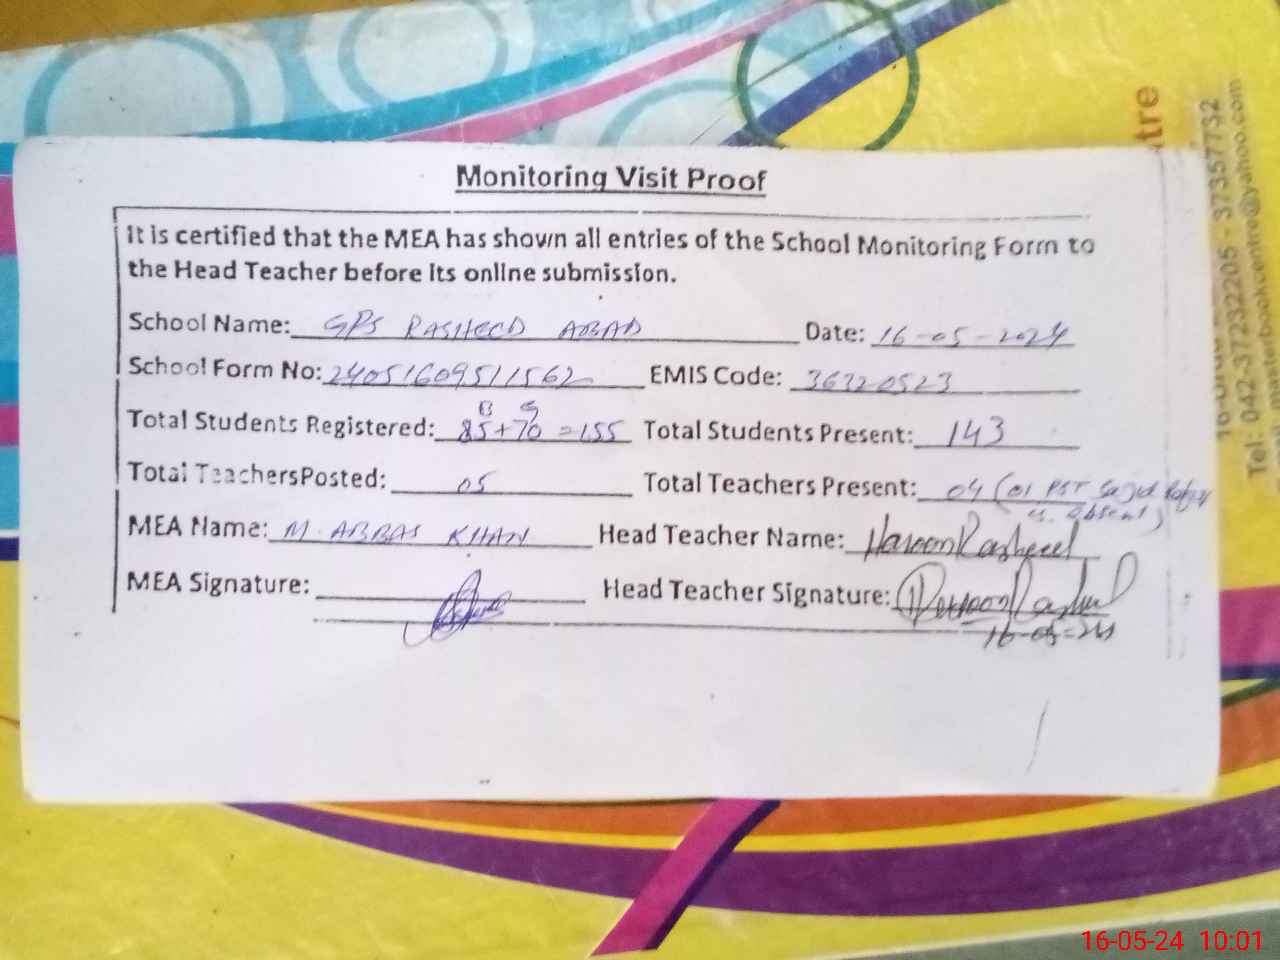 Monitoring Visit Proof
It is certified that the MEA has shown all entries of the School Monitoring Form to
the Head Teacher before its online submission.
School Name: GPS RASHEED ABAD Date: 16-05-2024
School Form No: 24051609511562 EMIS Code: 36320523
B G
Total Students Registered: 85+70=155 Total Students Present: 143
Total Teachers Posted: 05 Total Teachers Present: 04 (01 PST Sajid
Absent)
MEA Name: M. ABBAS KHAN Head Teacher Name: Haroon Rasheed
MEA Signature: Head Teacher Signature: Haroon Rashid
16-05-24
tre
Tel: 042-37232205 - 37357732
masterbookcentre@yahoo.com
16-05-24 10:01